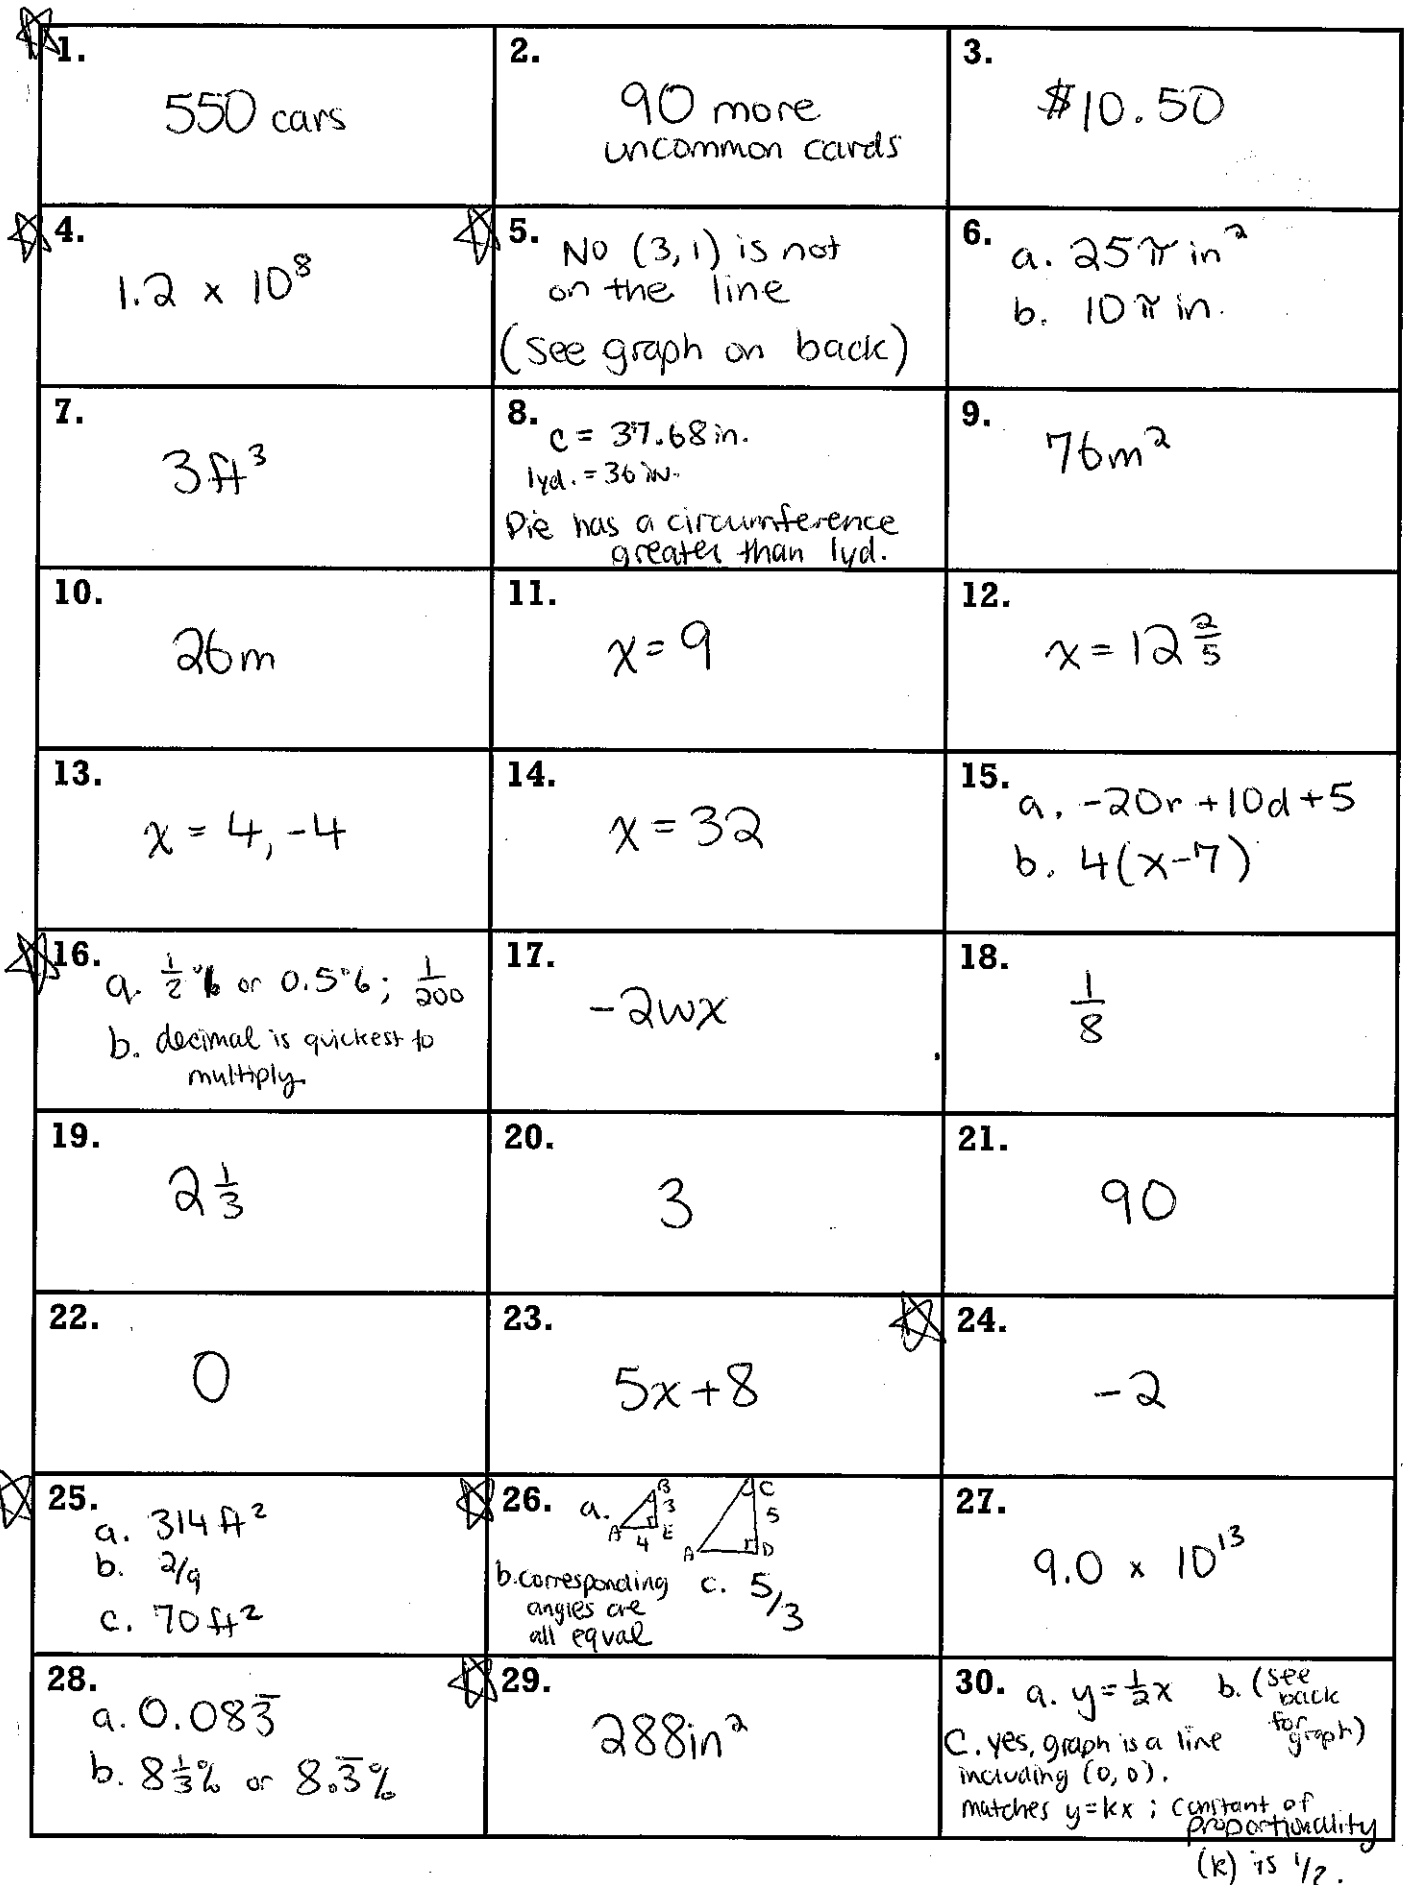 1.
550 cars
2.
90 more
uncommon cards
3.
$10.50
4.
1.2 x 10⁸
5. No (3,1) is not
on the line
(see graph on back)
6. a. 25π in²
b. 10π in.
7.
3ft³
8. C = 37.68in.
1yd. = 36 in.
Pie has a circumference
greater than 1yd.
9.
76m²
10.
26m
11.
x = 9
12.
x = 12 2/5
13.
x = 4, -4
14.
x = 32
15. a. -20r + 10d + 5
b. 4(x-7)
16. a. 1/2 % or 0.5%; 1/200
b. decimal is quickest to
multiply
17.
-2wx
18.
1/8
19.
2 1/3
20.
3
21.
90
22.
0
23.
5x+8
24.
-2
25.
a. 314 ft²
b. 2/9
c. 70 ft²
26. a. A B 3 4 E A C 5 D
b. corresponding
angles are
all equal
c. 5/3
27.
9.0 x 10¹³
28.
a. 0.083̅
b. 8 1/3 % or 8.3̅%
29.
288in²
30. a. y = 1/2 x b. (see
back
for
graph)
C. yes, graph is a line
including (0,0).
matches y=kx ; constant of
proportionality
(k) is 1/2.